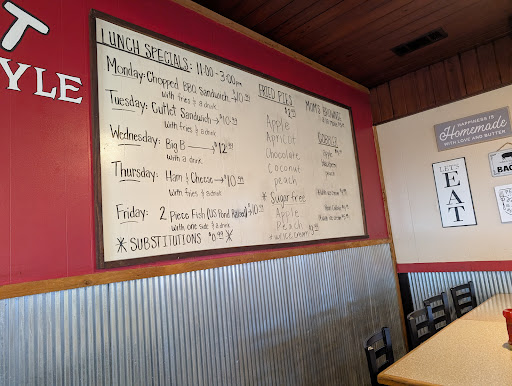 T
YLE
LUNCH SPECIALS: 11:00 - 3:00pm
Monday: Chopped BBQ Sandwich $10.99
with fries & a drink
Tuesday: Cutlet Sandwich → $10.99
with fries & a drink
Wednesday: Big B → $12.99
with a drink
Thursday: Ham & Cheese → $10.99
with fries & drink
Friday: 2 Piece Fish (US Pond Raised) $10.99
with one side & a drink
* SUBSTITUTIONS $0.99 *
FRIED PIES
Apple
Apricot
Chocolate
Coconut
peach
* Sugar free
Apple
Peach
MOM'S BROWNIE
COBBLER
Apple
HAPPINESS IS
Homemade
WITH LOVE AND BUTTER
LET'S
EAT